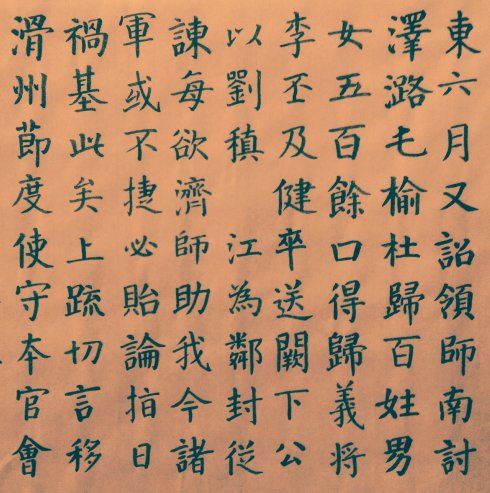 東六月又詔領師南討
澤潞七榆社歸百姓男
女五百餘口得歸義將
李丕及健卒送闕下公
以劉稹 江為鄰封從
諫每欲濟師助我今諸
軍或不捷必貽論指日
禍基此矣上疏切言移
滑州節度使守本官會